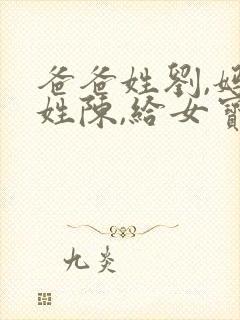 爸爸姓劉,媽
姓陳,給女寶
九炎